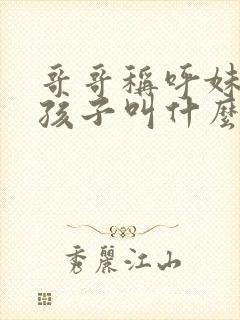 哥哥稱呼妹
孩子叫什麼
秀麗江山